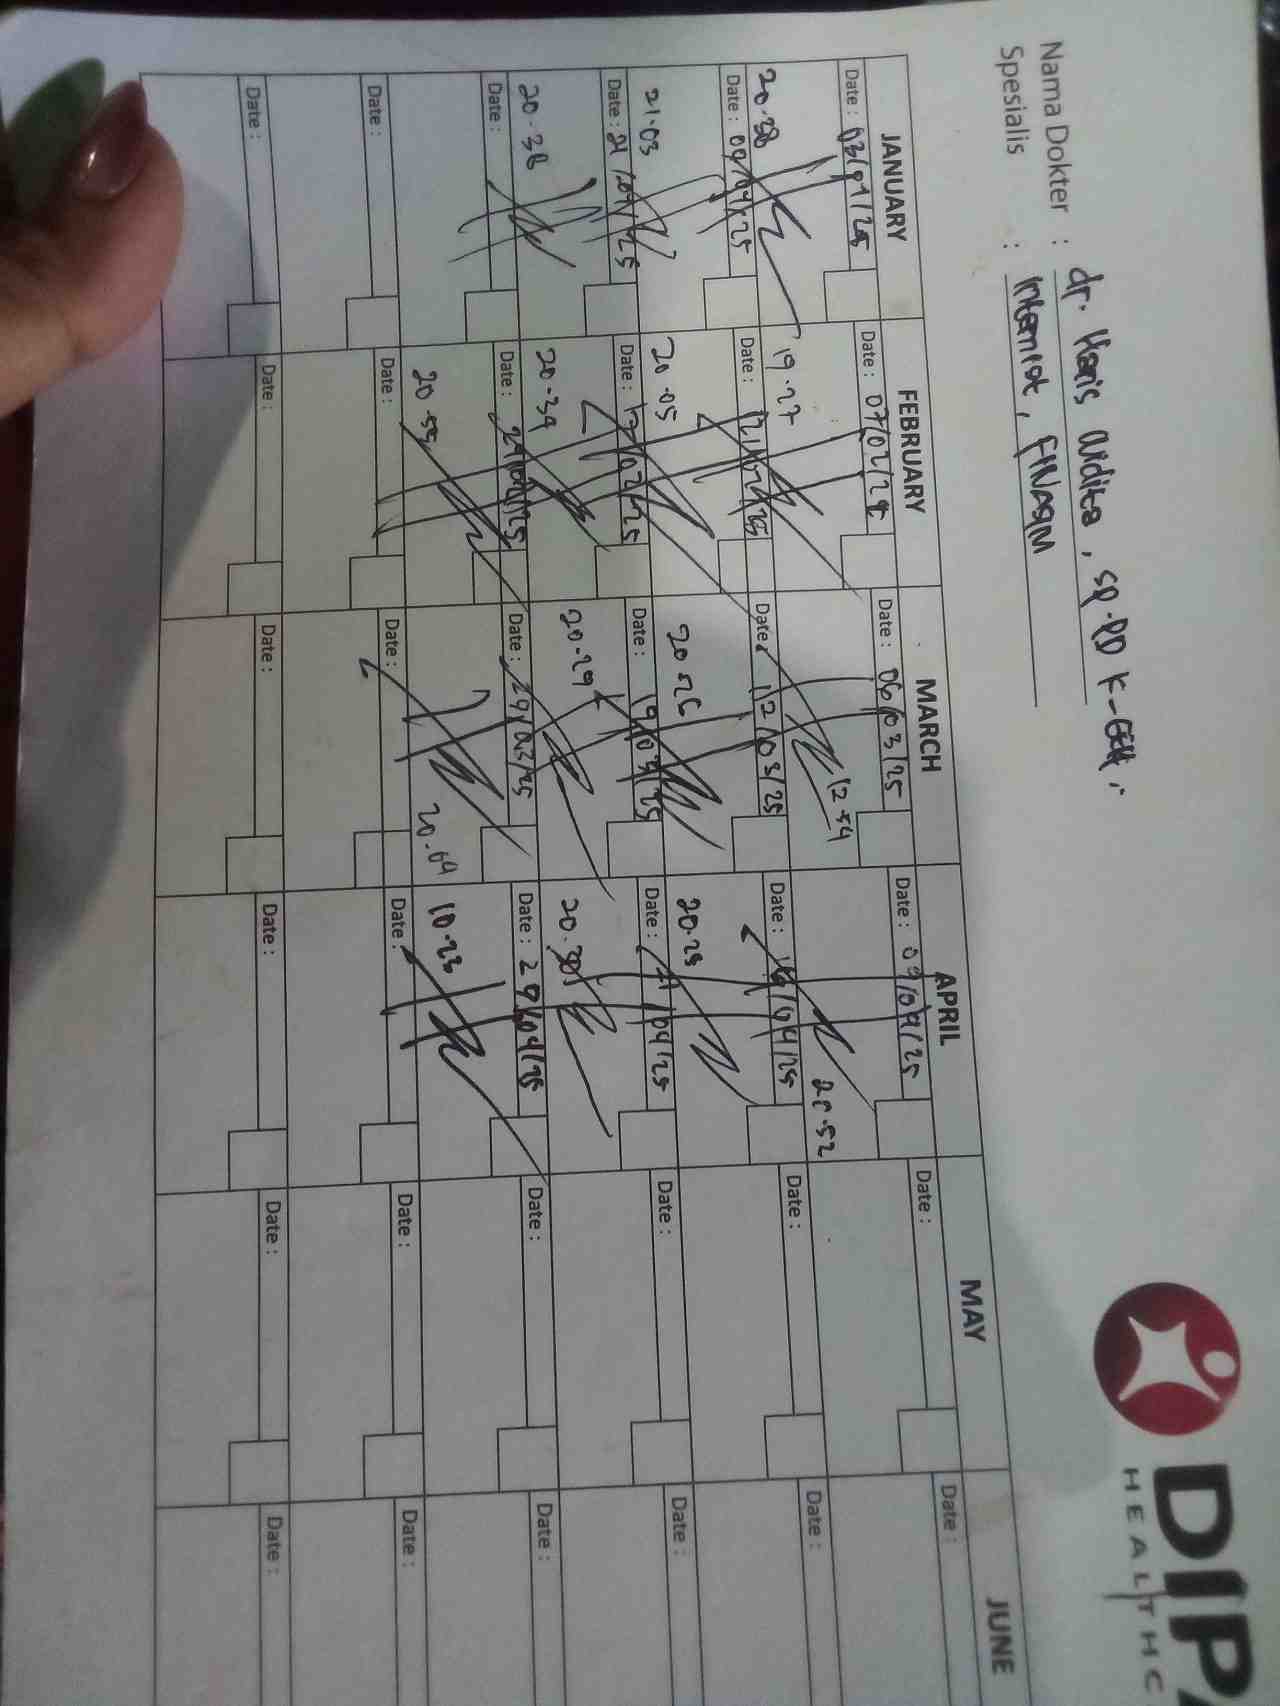 DIPA
HEALTHC
Nama Dokter : dr. Haris Widita, Sp.PD K-GEH,
Spesialis : Internist, FINASIM
JANUARY FEBRUARY MARCH APRIL MAY JUNE
Date : 03/01/25 Date : 07/02/25 Date : 06/03/25 Date : 09/04/25 Date : Date :
20.38 19.27 12.54 20.52
Date : 09/01/25 Date : 12/02/25 Date : 12/03/25 Date : 15/04/25 Date : Date :
21.03 20.05 20.26 20.29
Date : 21/01/25 Date : 17/02/25 Date : 19/03/25 Date : /04/25 Date : Date :
20.38 20.34 20.29 20.30
Date : Date : 24/02/25 Date : 29/03/25 Date : 29/04/25 Date : Date :
20.55 20.04 10.23
Date : Date : Date : Date : Date : Date :
Date : Date : Date : Date : Date : Date :